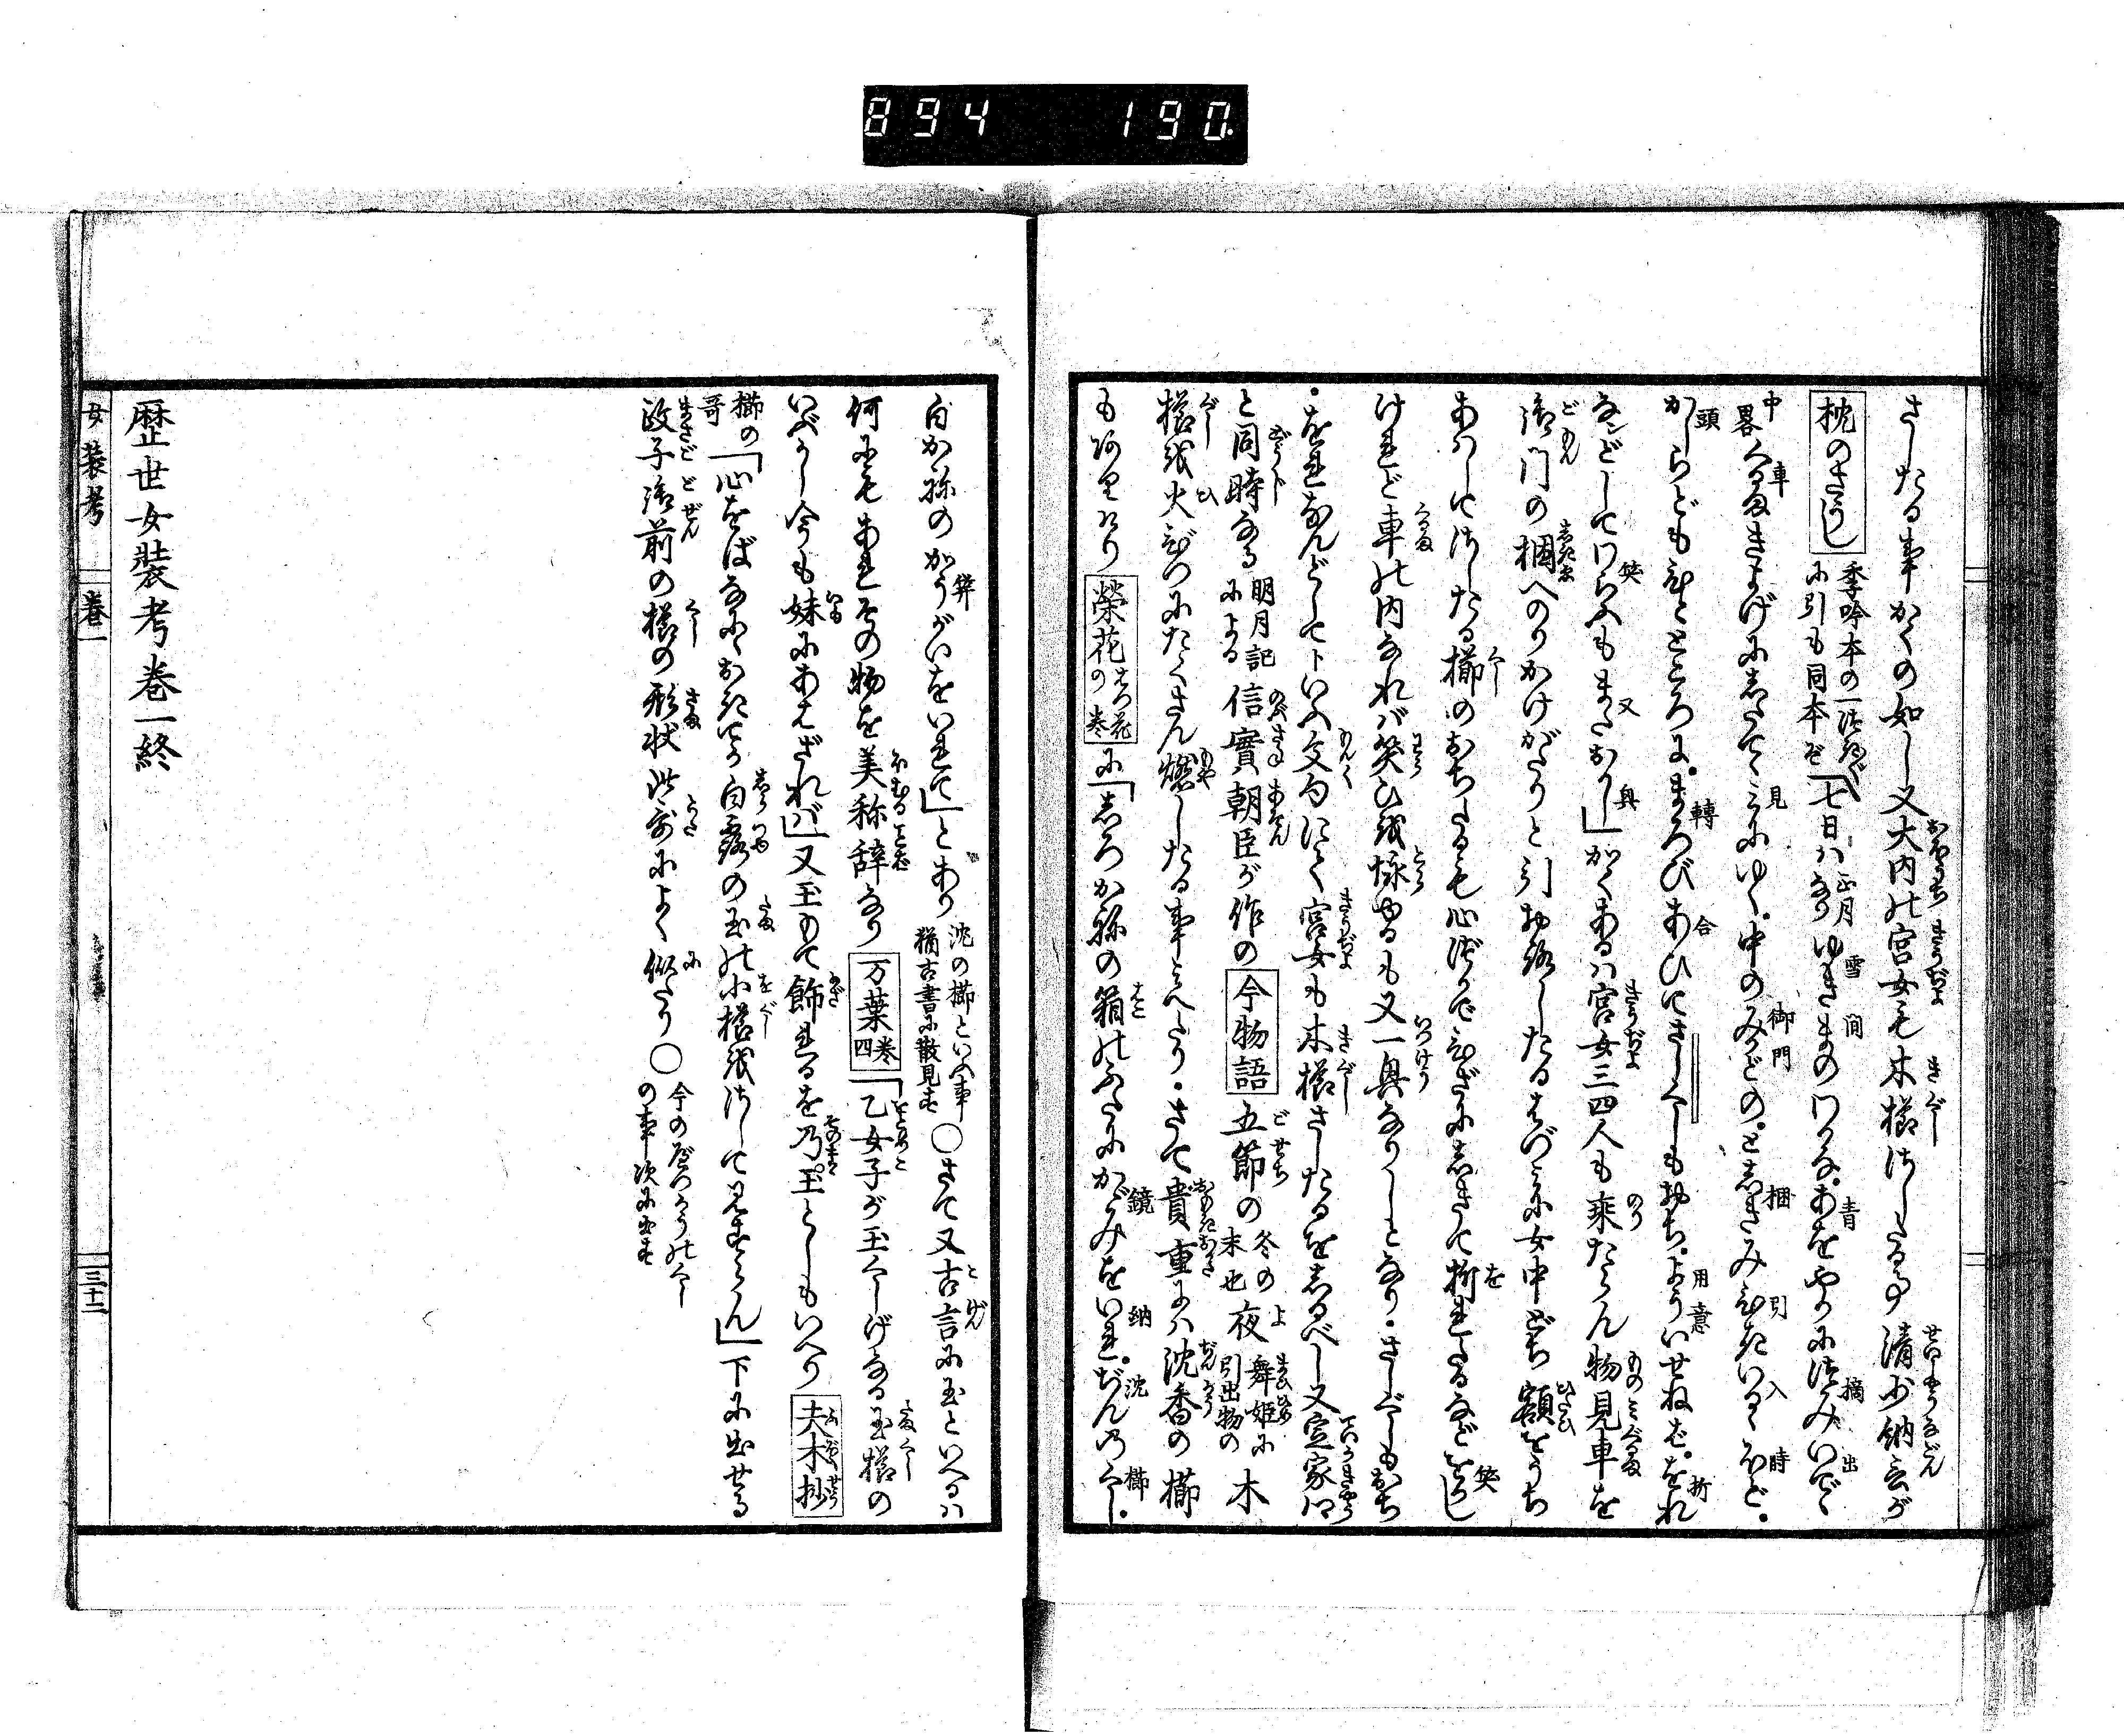 894 190.
さしたる事かくの如し又大内の宮女も木櫛さしたる事清少納言が
枕のさうし 季吟本の一 に引も同本ぞ「七日ハ正月なりゆきまのわかなあをやかにつみいでゝ
中畧 くるまきよげにしたてゝ見にゆく中のみかどのとしきみひきいるゝほど
かしらどもひとところにまろびあひてさしぐしもおちよういせねばをれ
などしてわらふもまたおかし」かくあるハ宮女三四人も乗たらん物見車を
御門の梱へのりかけがたりと引 したるはづみに女中どち額をうち
あはしてさしたる櫛のおちたるも心づかでひざにしきて折たるなどをかし
けれど車の内なれバ笑ひを もまた一興なりしとなり・さしぐしもおち
・をれなんどしてトいふ文句にて宮女も木櫛さしたるをしるべし又定家卿
と同時なる 明月記による 信實朝臣が作の 今物語 五節の 冬の末也 夜 舞姫に引出物の 木
櫛を火びつにたくさん燃したる事みへたり・さて貴重にハ沈香の櫛
もありけり 榮花 はつ花の巻 に「しろかねの箱のふたにかゞみをいれぢんのくし・
白かねのかうがいをいれて」とあり 沈の櫛といふ事猶古書に散見す ○さて又古言に玉といへるハ
何にもあれその物を美称辞なり 万葉 四巻 「乙女子が玉くしげなる玉櫛の
いぶかし今も妹にあはざれバ」又玉もて飾れるを乃玉ぐしもいへり 夫木抄
櫛の哥「心をばなにゝおきてか白露の玉の小櫛をさして見すらん」下に出せる
政子御前の櫛の形状此哥によく似たり○ 今の の事次に出す
歴世女装考巻一終
女装考 巻一 三十二